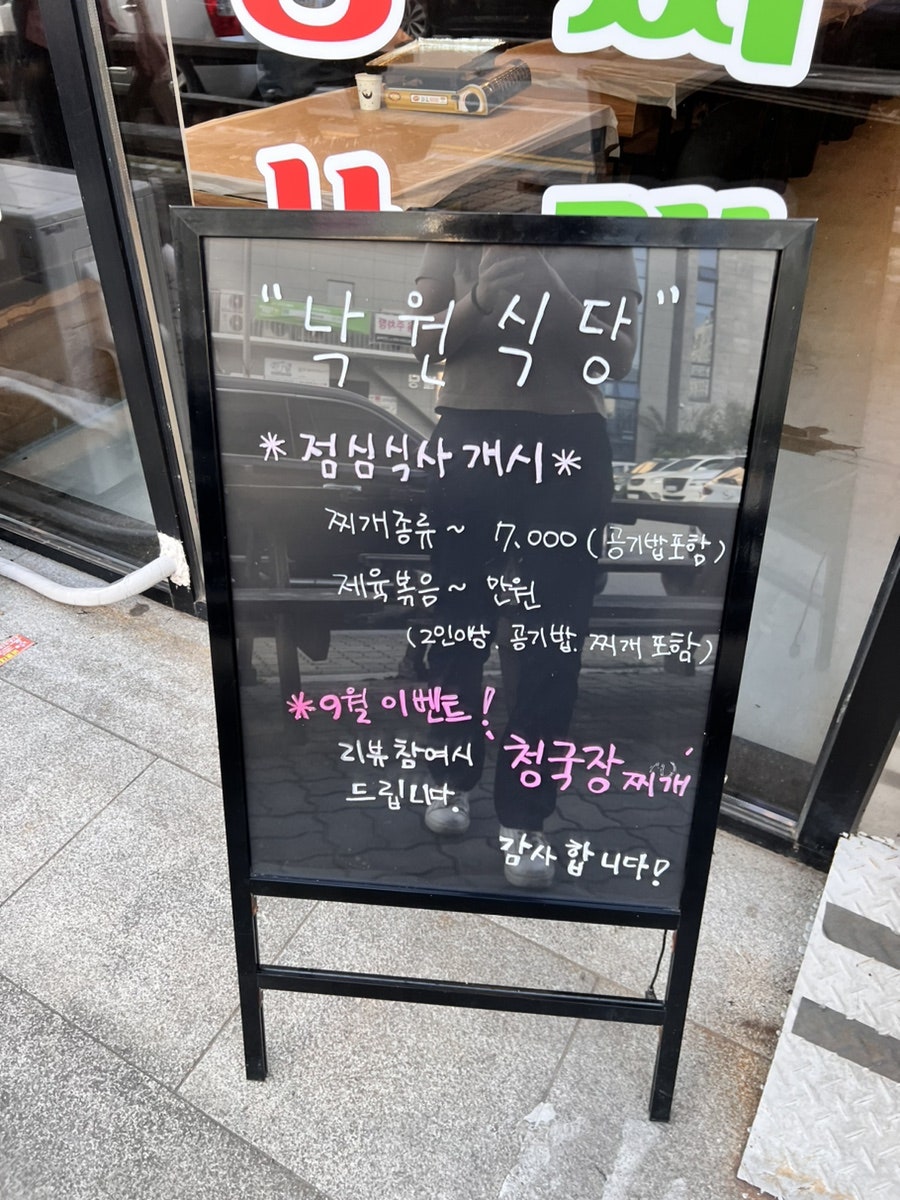 "낙원식당"
*점심식사 개시*
찌개종류~ 7,000 (공기밥포함)
제육볶음~ 만원
(2인이상. 공기밥. 찌개 포함)
*9월 이벤트!
리뷰참여시 '청국장찌개'
드립니다.
감사합니다!